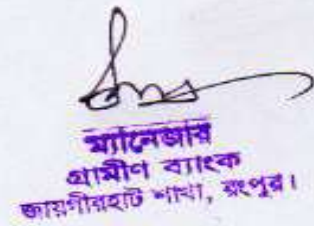 ম্যানেজার
গ্রামীণ ব্যাংক
জায়গীরহাট শাখা, রংপুর।